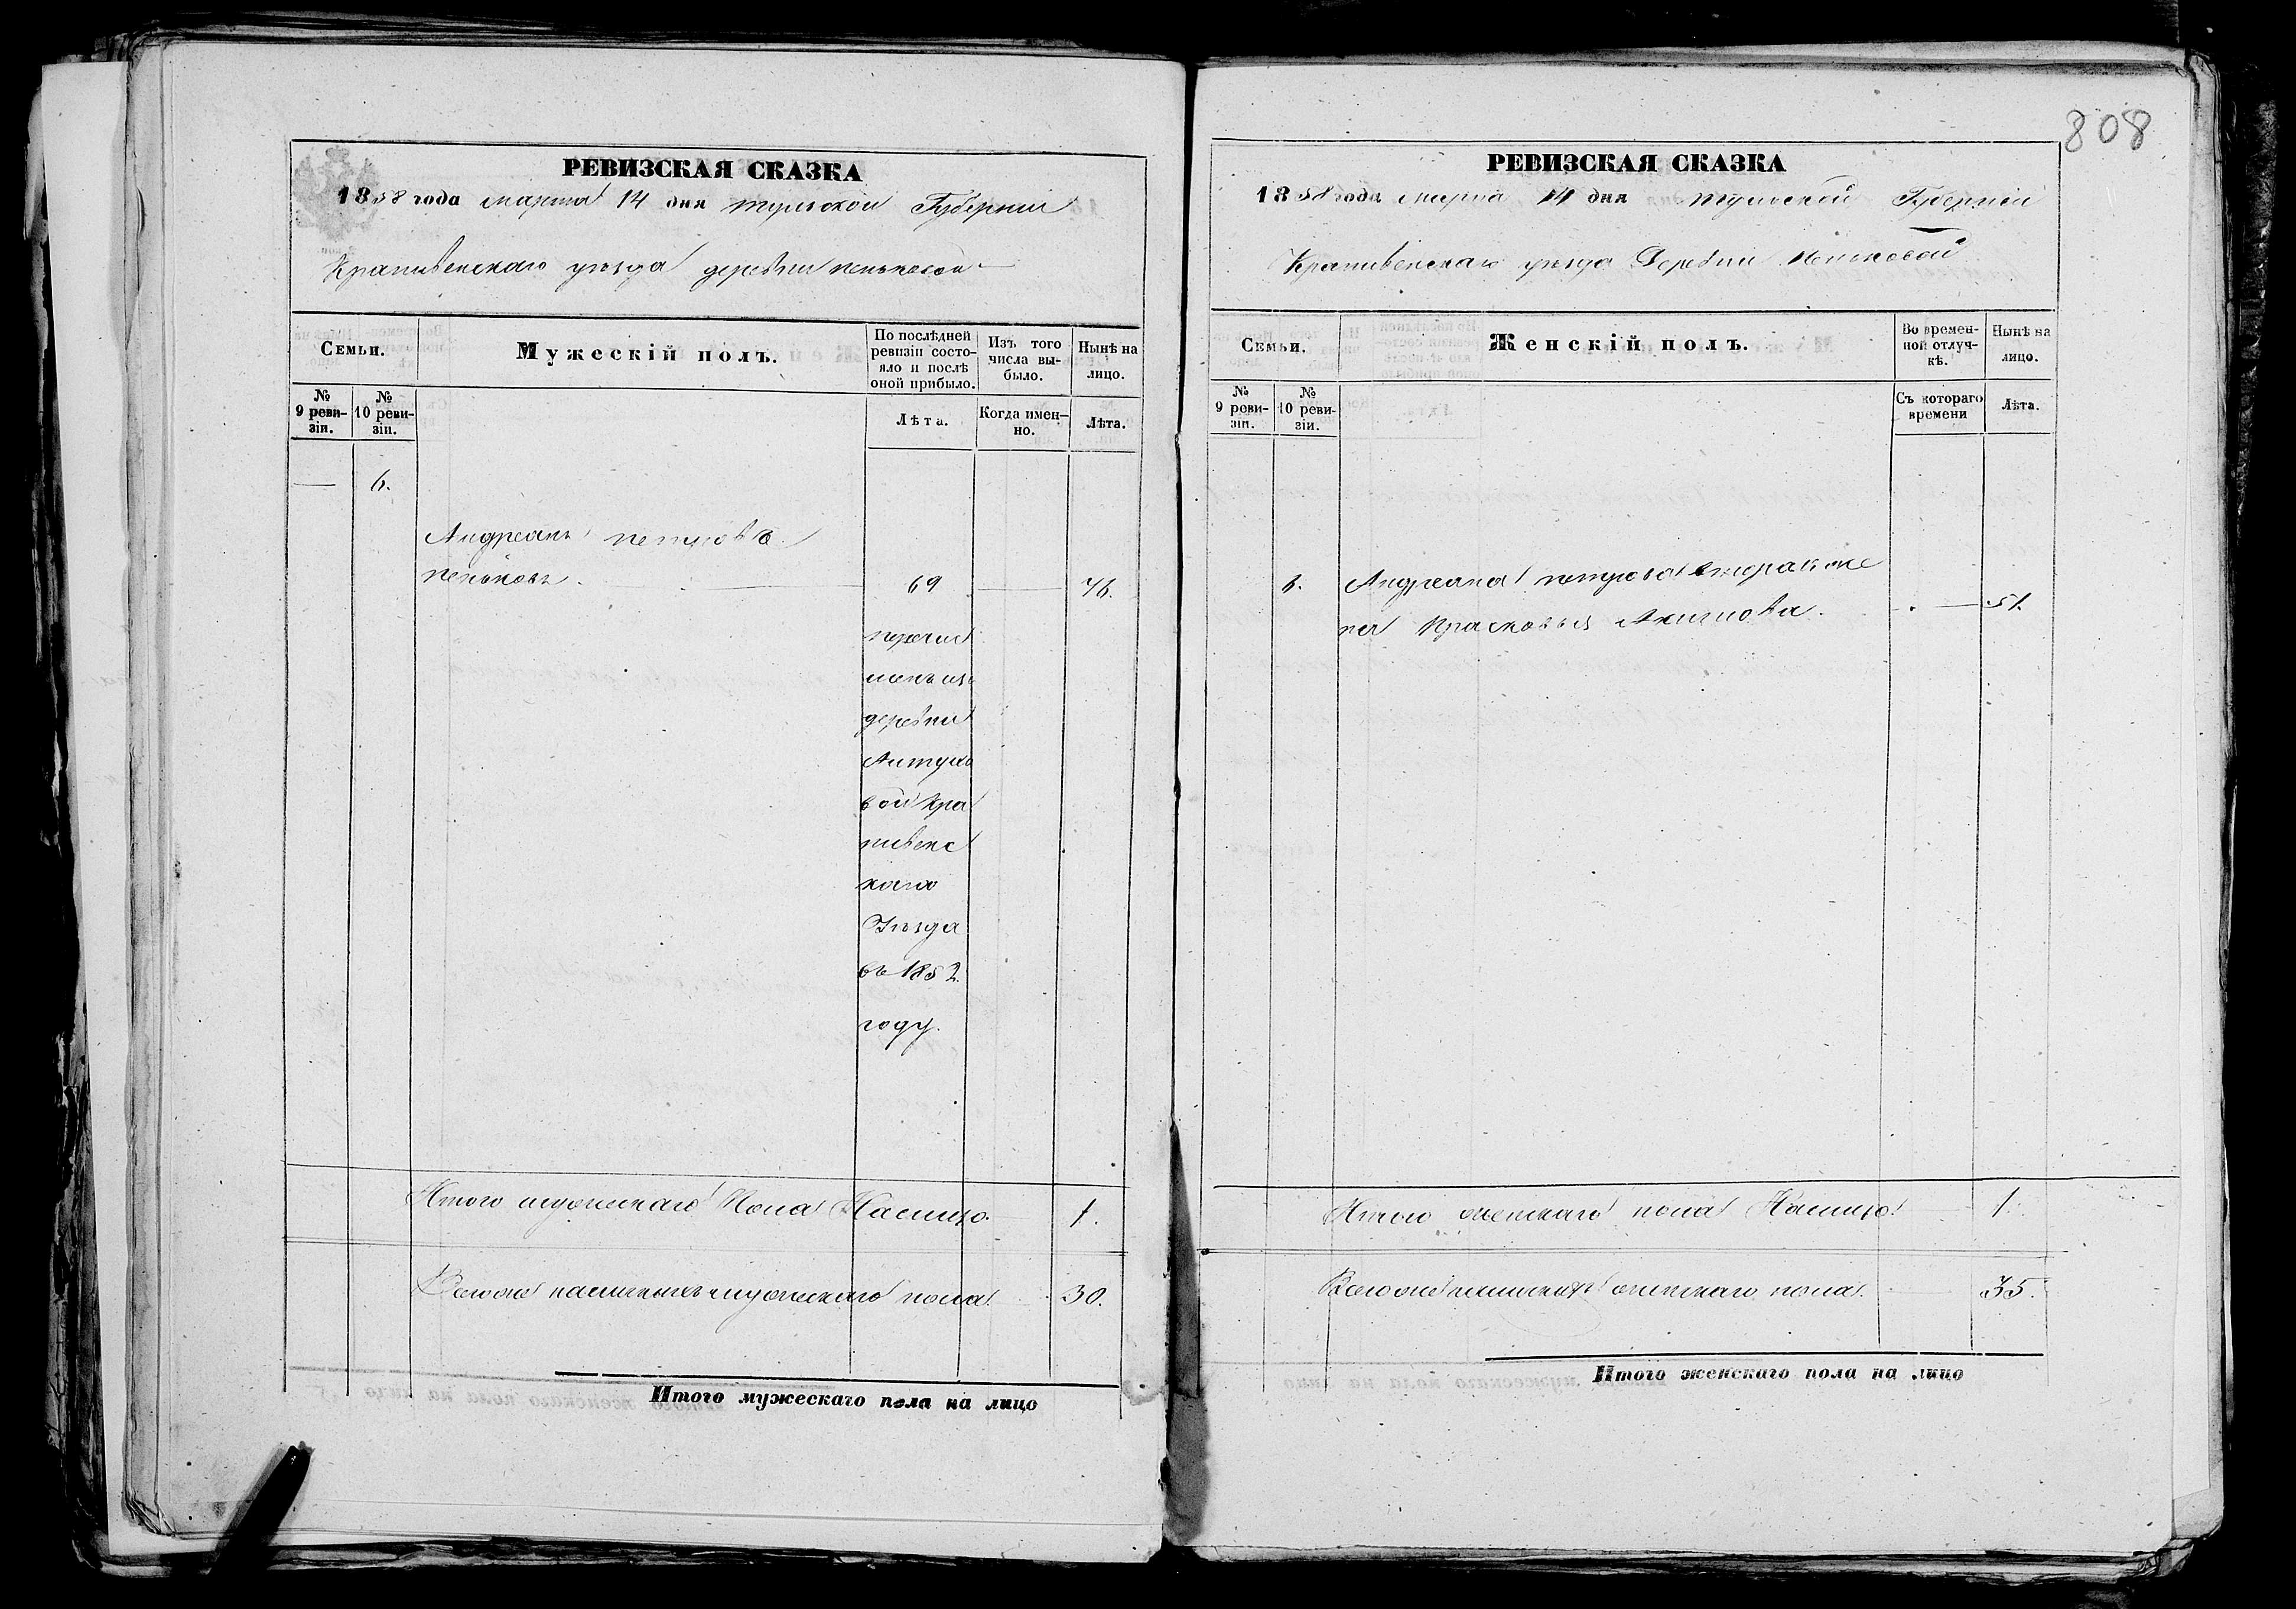 РЕВИЗСКАЯ СКАЗКА
1858 года марта 14 дня тульской Губернии
Крапивенскаго уезда деревни пеньковой
Семьи.
Мужескій полъ.
По послѣдней ревизіи состояло и послѣ оной прибыло.
Изъ того числа выбыло.
Нынѣ на лицо.
№ 9 ревизіи.
№ 10 ревизіи.
Лѣта.
Когда именно.
Лѣта.
6.
Андреянъ петровъ
пеньковъ. 69 76.
перечис
ленъ изъ
деревни
вой Кра
пивенс
каго
Уезда
въ 1852
году.
Итого мужескаго Пола Налицо. 1.
Всего наличныхъ мужескаго пола 30.
Итого мужескаго пола на лицо
808
РЕВИЗСКАЯ СКАЗКА
1858 года марта 14 дня тульской Губерніи
Крапивенскаго уезда Деревни Пеньковой
Семьи.
Женскій полъ.
Во временной отлучкѣ.
Нынѣ на лицо.
№ 9 ревизіи.
№ 10 ревизіи.
Съ котораго времени
Лѣта.
6. Андреяна петрова вторая же
на Прасковья Акимова. 51.
Итого женскаго пола Налицо 1.
Всего наличныхъ женскаго пола. 35.
Итого женскаго пола на лицо